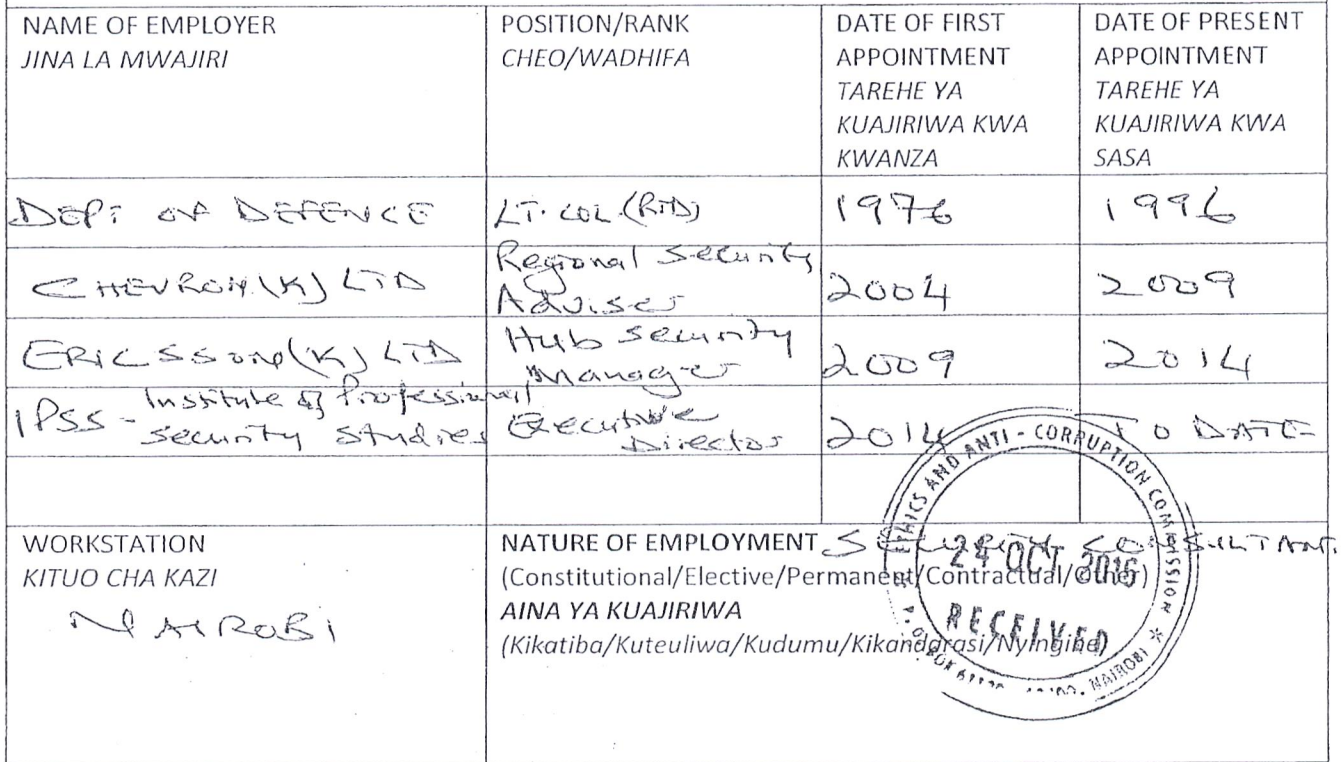 NAME OF EMPLOYER
JINA LA MWAJIRI
POSITION/RANK
CHEO/WADHIFA
DATE OF FIRST
APPOINTMENT
TAREHE YA
KUAJIRIWA KWA
KWANZA
DATE OF PRESENT
APPOINTMENT
TAREHE YA
KUAJIRIWA KWA
SASA
DEPT OF DEFENCE
LT. COL. (RTD)
1976
1996
CHEVRON (K) LTD
Regional Security
Adviser
2004
2009
ERICSSON (K) LTD
Hub Security
Manager
2009
2014
IPSS - Institute of Professional
Security Studies
Executive
Director
2014
TO DATE
WORKSTATION
KITUO CHA KAZI
NAIROBI
NATURE OF EMPLOYMENT SECURITY CONSULTANT.
(Constitutional/Elective/Permanent/Contractual/Other)
AINA YA KUAJIRIWA
(Kikatiba/Kuteuliwa/Kudumu/Kikandarasi/Nyingine)
ETHICS AND ANTI - CORRUPTION COMMISSION
24 OCT 2016
RECEIVED
NAIROBI